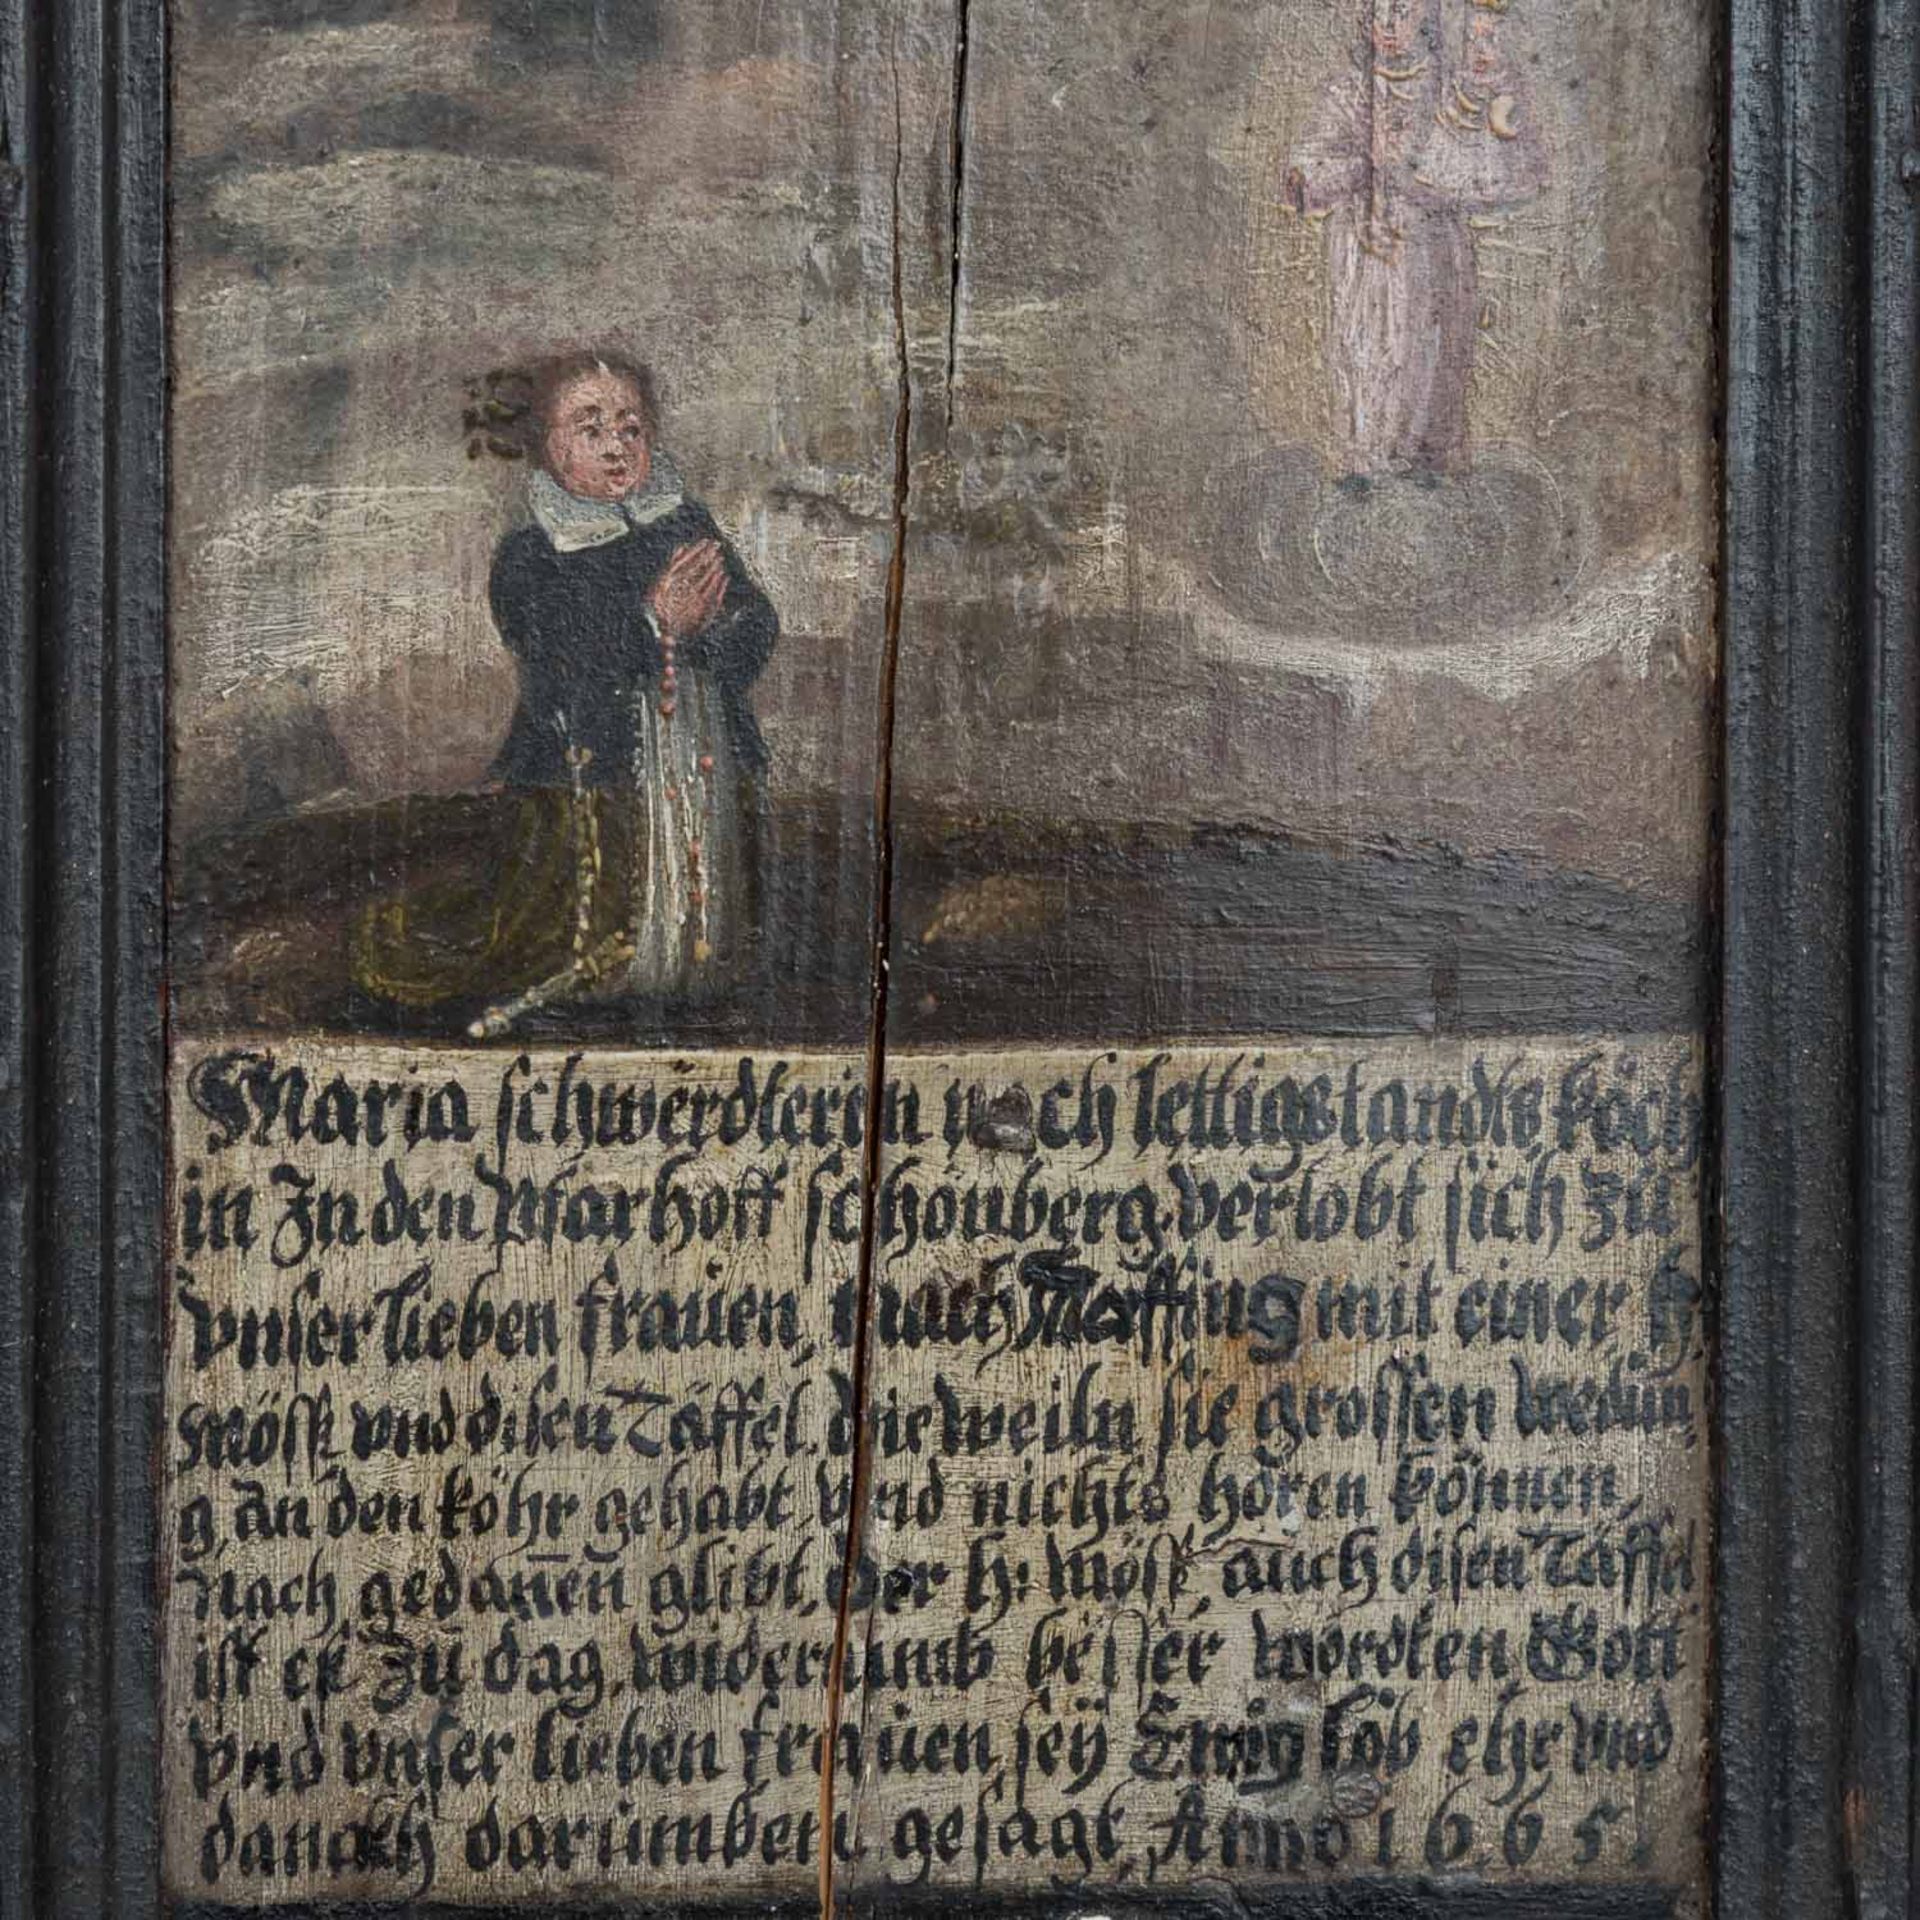 Maria schwerdlerin nach lettigstandts köch
in In den Pfarhoff schönberg, verlobt sich zu
vnser lieben frauen, nach Maffing mit einer H:
Mösß, vnd disen Täffel, dieweiln sie grossen wedün,
g, an den köhr gehabt, vnd nichts hören können,
Nach gedanēn glibt, der H: Mösß, auch disen Täffel
ist eß zu dag, widerumb besser wordten Gott
vnd vnser lieben frauen, seÿ Ewig lob ehr vnd
danckh darumben gesagt, Anno 1665.